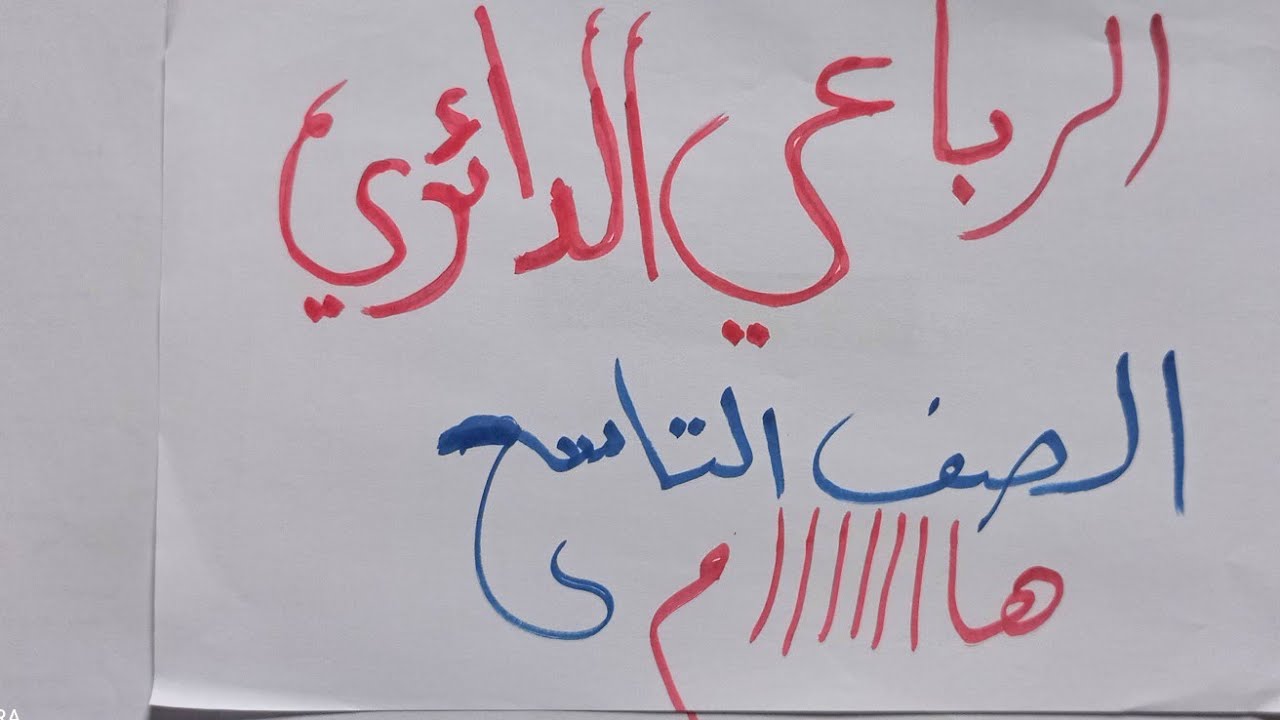 الرباعي الدائري
الصف التاسع
هااااااام
RA